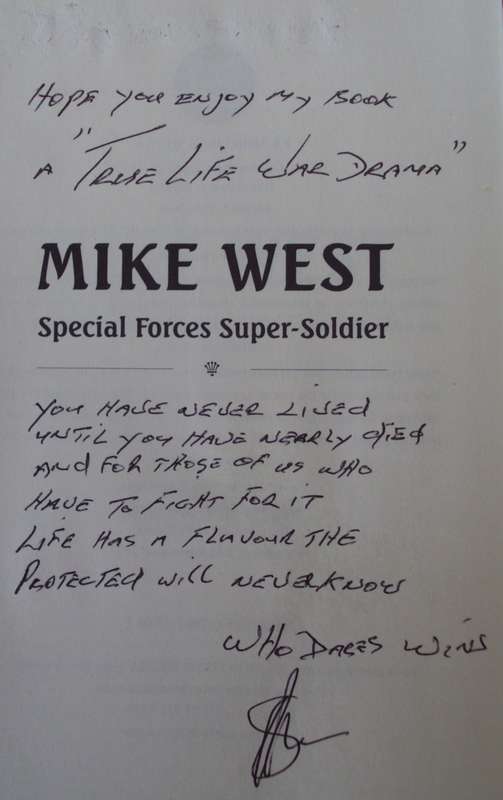 HOPE YOU ENJOY MY BOOK
A "TRUE LIFE WAR DRAMA"
MIKE WEST
Special Forces Super-Soldier
YOU HAVE NEVER LIVED
UNTIL YOU HAVE NEARLY DIED
AND FOR THOSE OF US WHO
HAVE TO FIGHT FOR IT
LIFE HAS A FLAVOUR THE
PROTECTED WILL NEVER KNOW
WHO DARES WINS